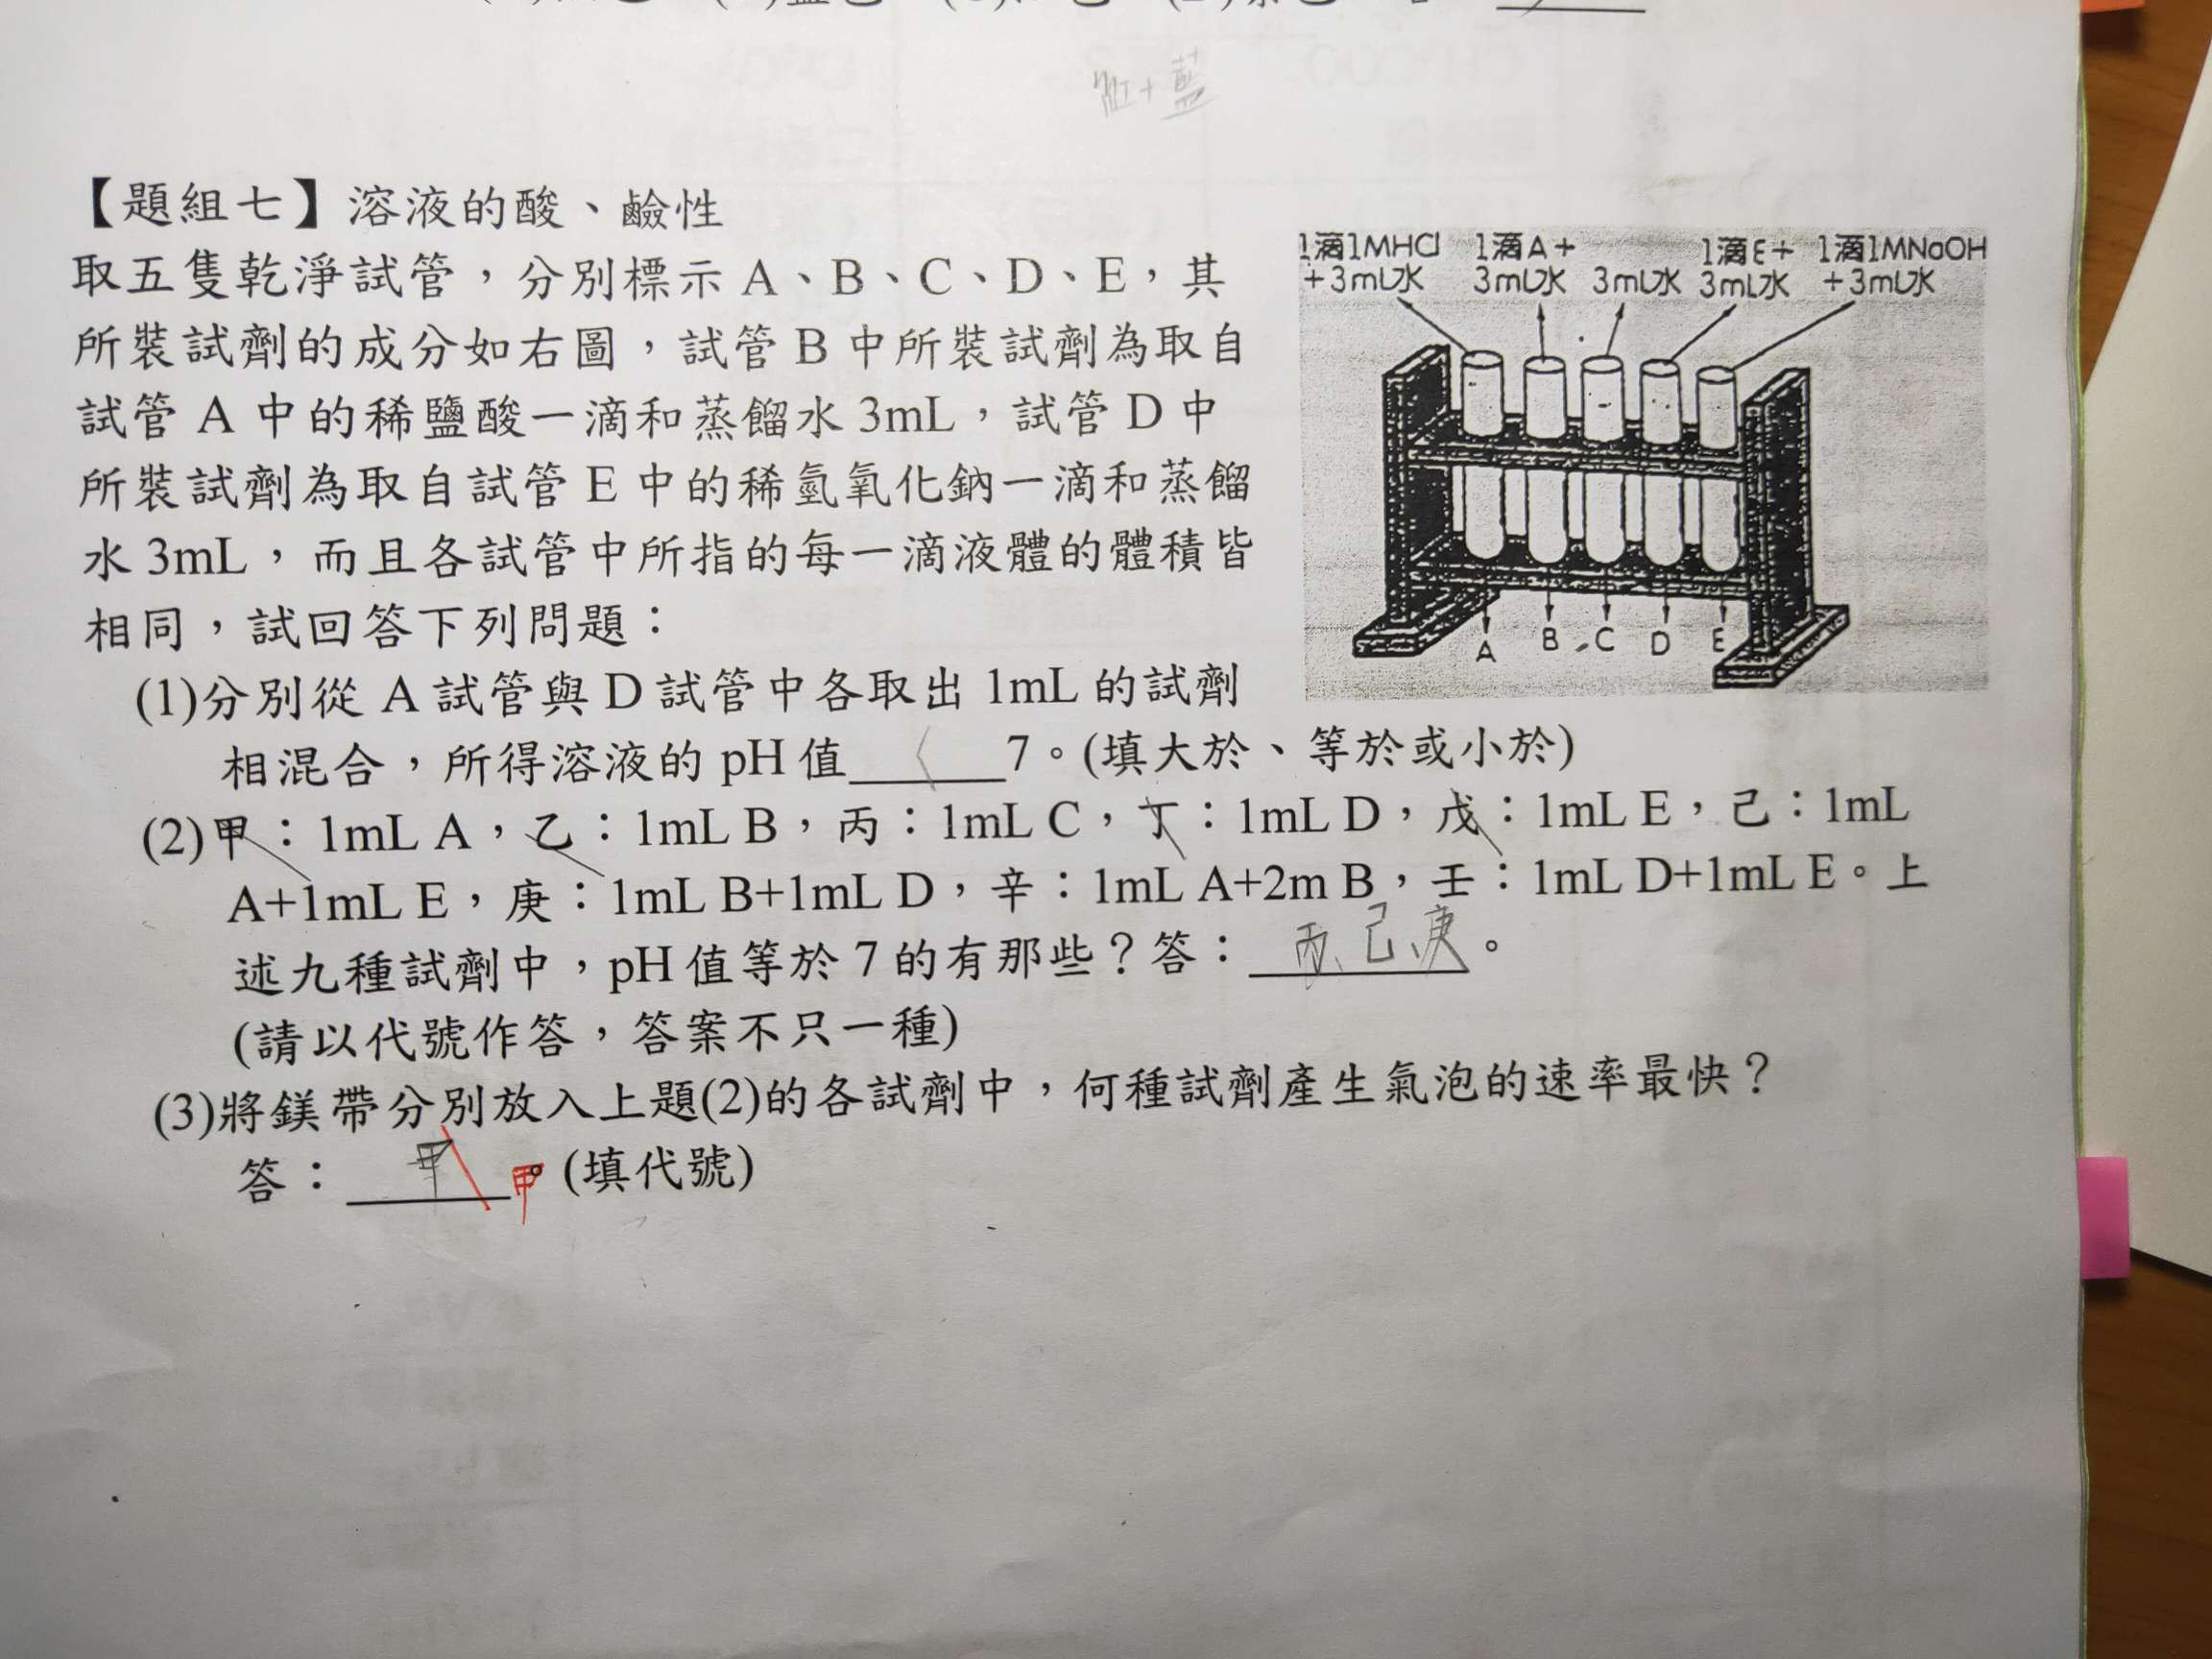 紅+藍
【題組七】溶液的酸、鹼性
取五隻乾淨試管，分別標示 A、B、C、D、E，其
所裝試劑的成分如右圖，試管 B 中所裝試劑為取自
試管 A 中的稀鹽酸一滴和蒸餾水 3mL，試管 D 中
所裝試劑為取自試管 E 中的稀氫氧化鈉一滴和蒸餾
水 3mL，而且各試管中所指的每一滴液體的體積皆
相同，試回答下列問題：
1滴1MHCl 1滴A+ 1滴E+ 1滴1MNaOH
+3mL水 3mL水 3mL水 3mL水 +3mL水
A B C D E
(1)分別從 A 試管與 D 試管中各取出 1mL 的試劑
相混合，所得溶液的 pH 值 < 7。(填大於、等於或小於)
(2)甲：1mL A，乙：1mL B，丙：1mL C，丁：1mL D，戊：1mL E，己：1mL
A+1mL E，庚：1mL B+1mL D，辛：1mL A+2m B，壬：1mL D+1mL E。上
述九種試劑中，pH 值等於 7 的有那些？答：丙、己、庚。
(請以代號作答，答案不只一種)
(3)將鎂帶分別放入上題(2)的各試劑中，何種試劑產生氣泡的速率最快？
答：甲 甲。(填代號)